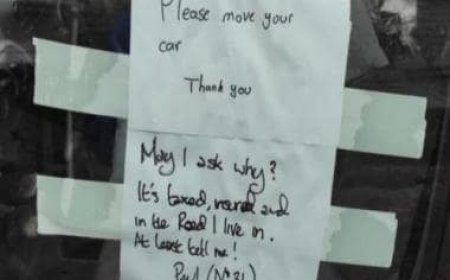 Please move your
car
Thank you
May I ask why?
It's taxed, insured and
in the Road I live in.
At least tell me!
Paul (No 31)